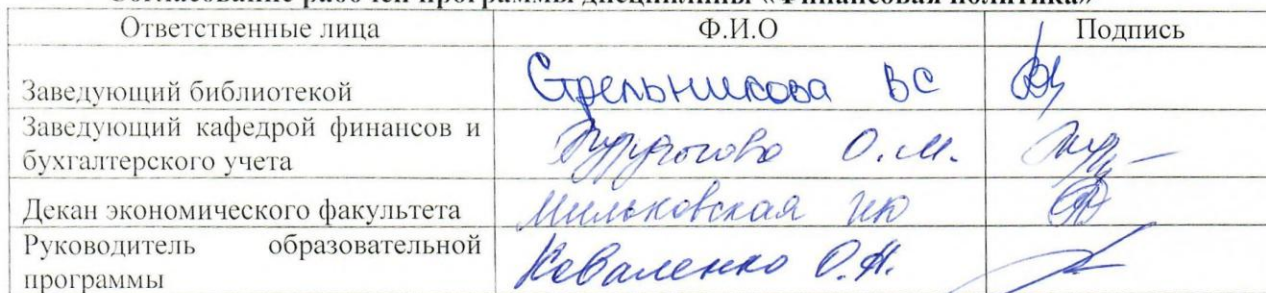 Согласование рабочей программы дисциплины «Финансовая политика»
Ответственные лица Ф.И.О Подпись
Заведующий библиотекой Стрельникова ВС
Заведующий кафедрой финансов и
бухгалтерского учета О.М.
Декан экономического факультета Мильковская ИЮ
Руководитель образовательной
программы Коваленко О.Н.